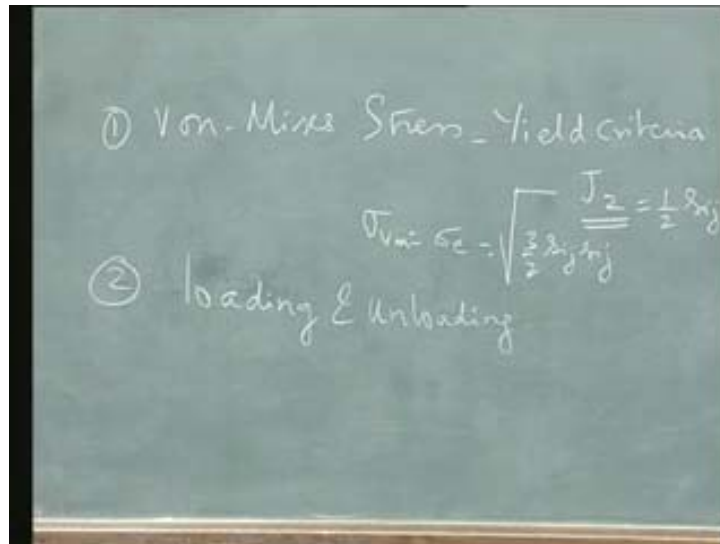 ① Von-Mises Stress - Yield criteria
J₂ = 1/2 Sij
σVm = σe = √ 3/2 Sij Sij
② loading & unloading